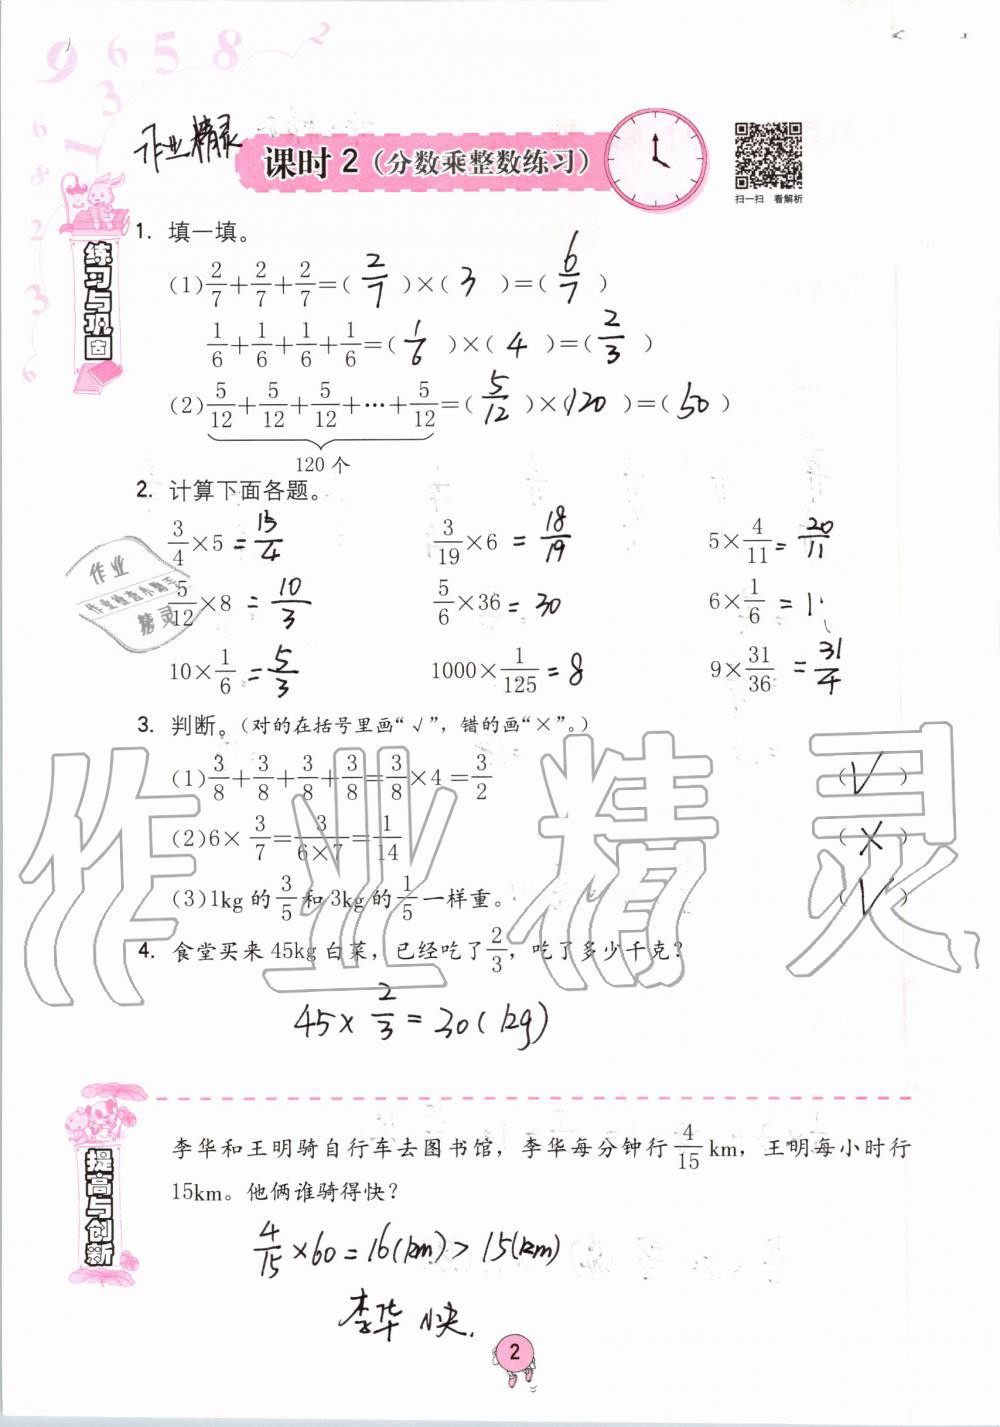 9 6 5 8 2
作业精灵
课时2（分数乘整数练习）
扫一扫 看解析
练习与巩固
1. 填一填。
(1) 2/7+2/7+2/7=( 2/7 )×( 3 )=( 6/7 )
1/6+1/6+1/6+1/6=( 1/6 )×( 4 )=( 2/3 )
(2) 5/12+5/12+5/12+…+5/12=( 5/12 )×( 120 )=( 50 )
120个
2. 计算下面各题。
3/4×5 = 15/4 3/19×6 = 18/19 5×4/11 = 20/11
5/12×8 = 10/3 5/6×36 = 30 6×1/6 = 1
10×1/6 = 5/3 1000×1/125 = 8 9×31/36 = 31/4
作业
作业检查小助手
精灵
3. 判断。（对的在括号里画“√”，错的画“×”。）
(1) 3/8+3/8+3/8+3/8=3/8×4=3/2 ( √ )
(2) 6×3/7=3/(6×7)=1/14 ( × )
(3) 1kg的3/5和3kg的1/5一样重。 ( √ )
作业精灵
4. 食堂买来45kg白菜，已经吃了2/3，吃了多少千克？
45×2/3=30(kg)
提高与创新
李华和王明骑自行车去图书馆，李华每分钟行4/15km，王明每小时行
15km。他俩谁骑得快？
4/15×60=16(km)>15(km)
李华快.
2